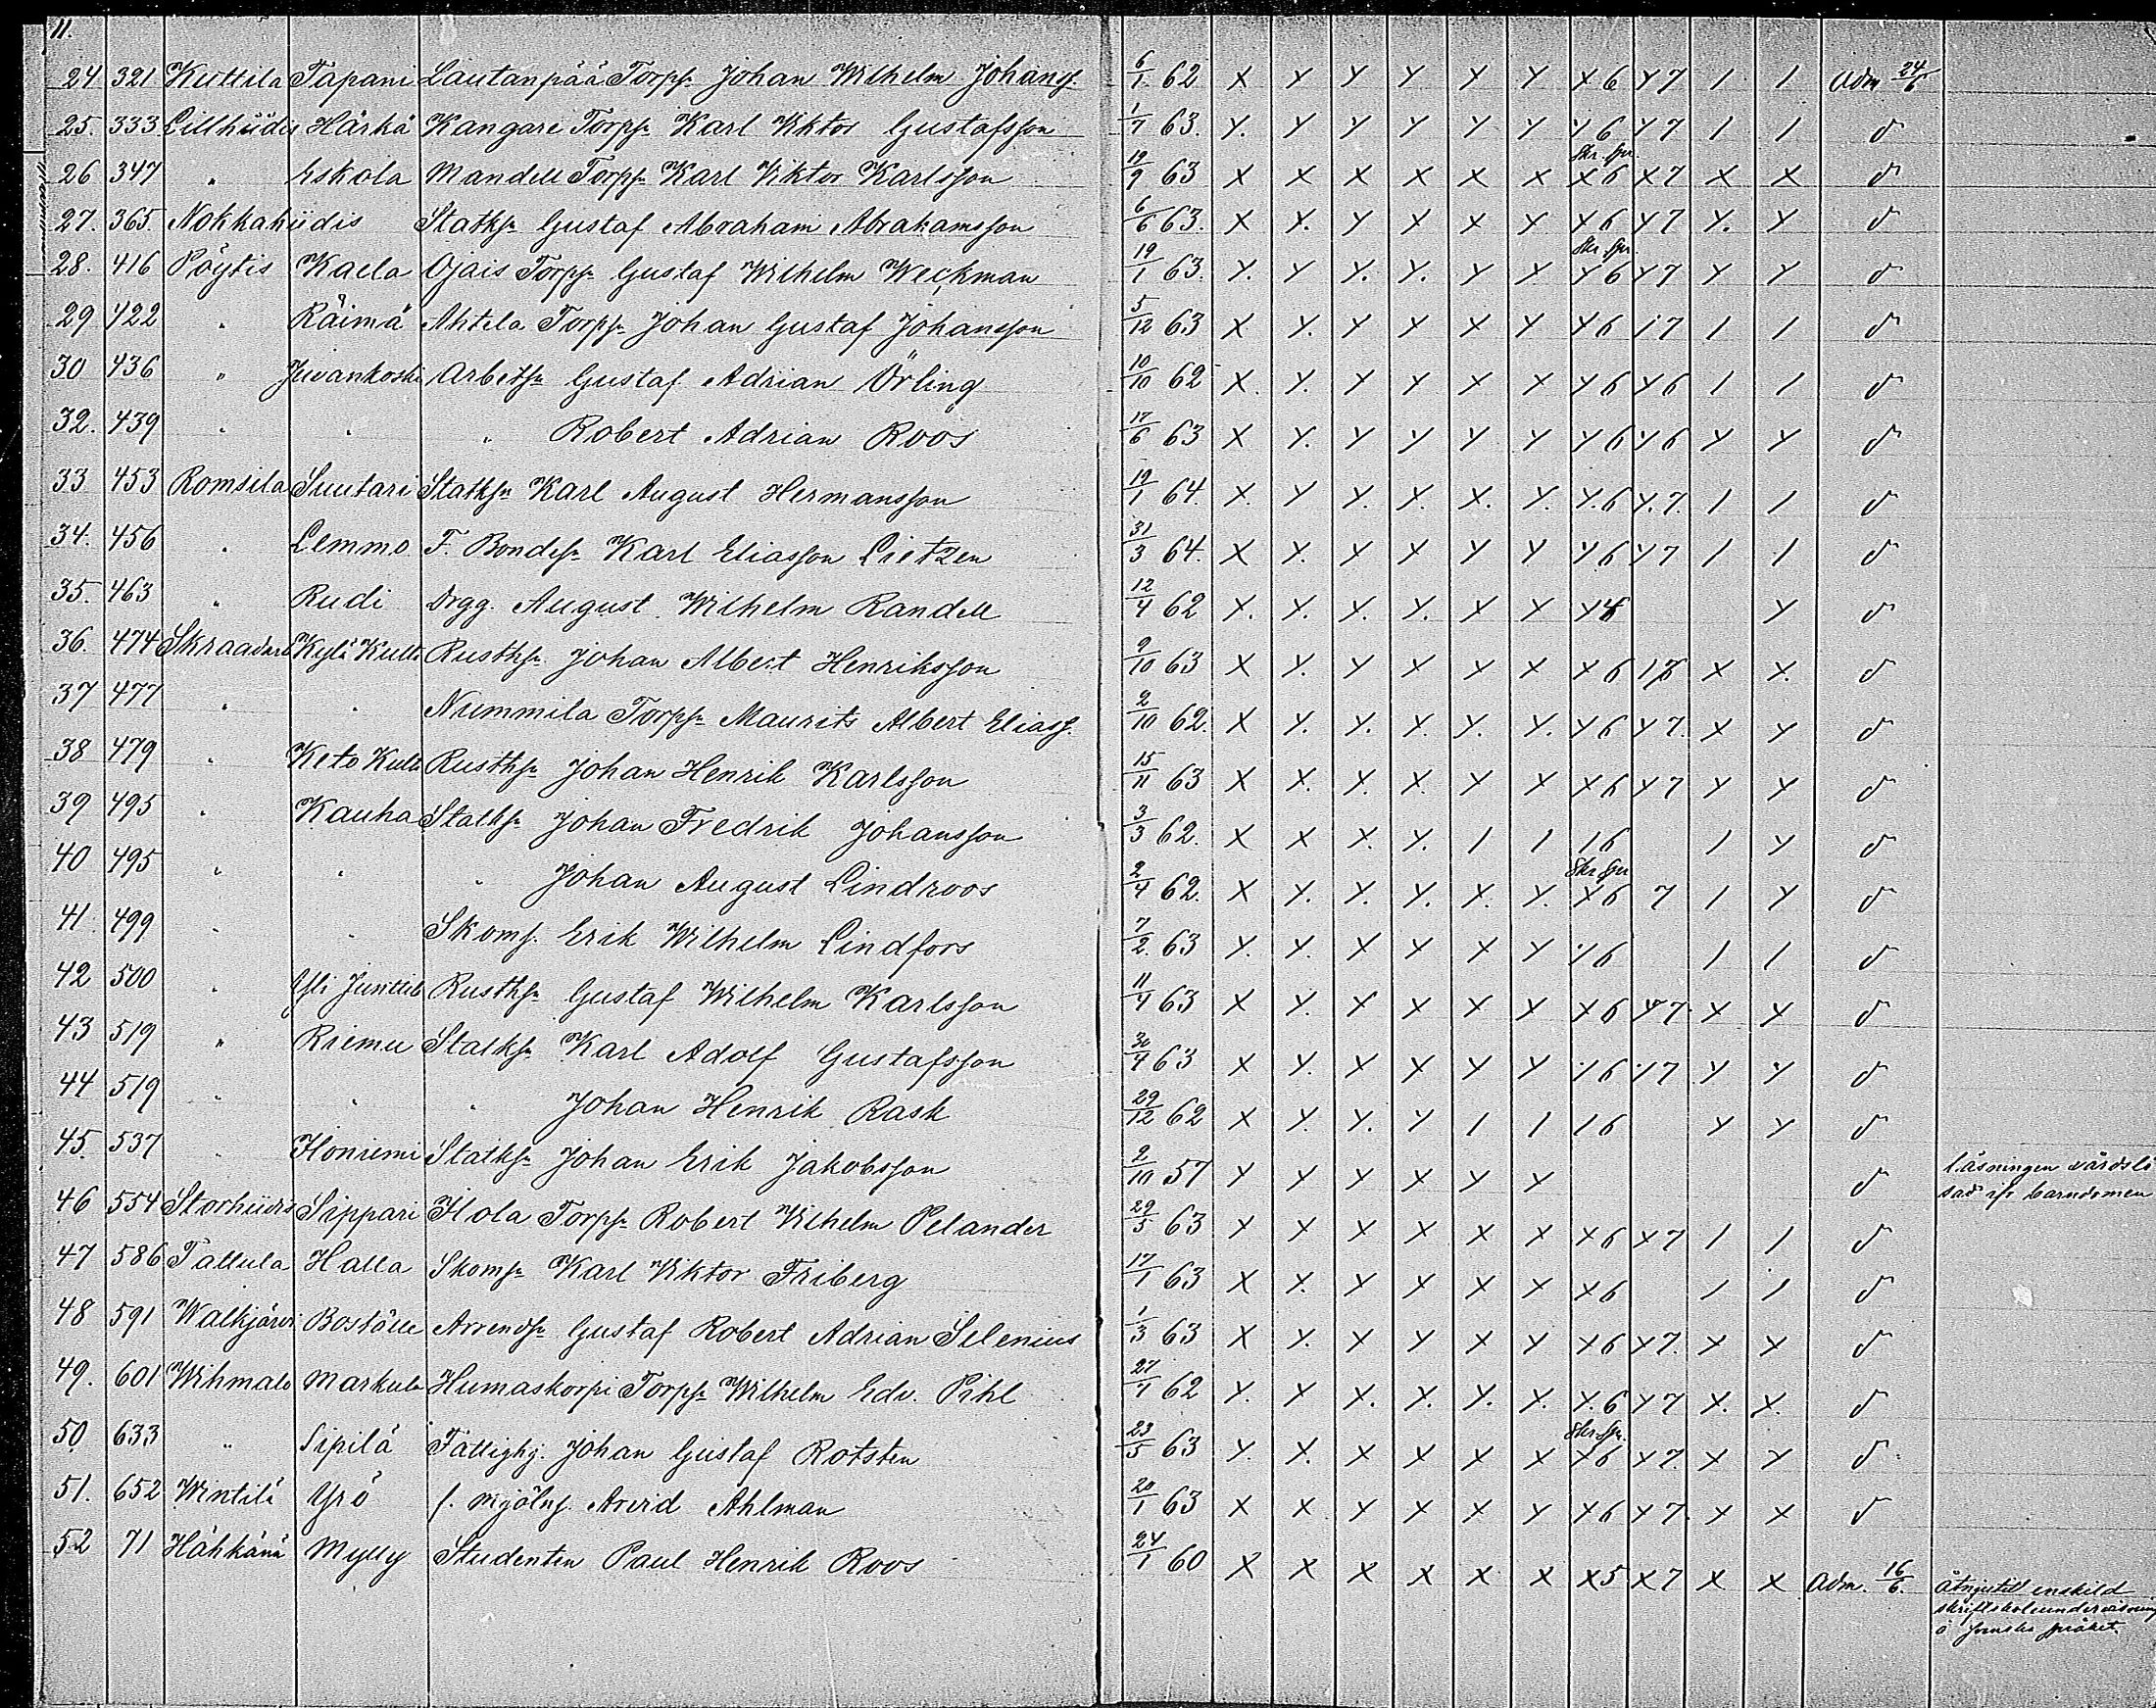 11.
24 321 Kuttila Tapani Lautanpää Torps. Johan Wilhelm Johanss. 6/1 62 X Y Y Y Y Y X 6 Y 7 / / Adm 24/6
25. 333 Lillhiidis Härkä Kangare Torps. Karl Viktor Gustafsson 1/7 63. Y. Y Y Y Y Y Y 6 Y 7 / /
26 347 " Eskola Mandell Torps. Karl Viktor Karlsson 19/9 63 X X X X X X X 6 X 7 X X
27. 365. Nokkahiidis Statks. Gustaf Abraham Abrahamsson 6/6 63. X X. Y X X X X 6 Y 7 Y. Y
28. 416 Pöytis Kaela Ojais Torps. Gustaf Wilhelm Weckman 19/1 63. Y. Y Y. Y. Y X Y 6 Y 7 Y Y
29 422 " Räimä Ahtela Torps. Johan Gustaf Johansson 5/12 63 X Y. Y X X Y Y 6 1 7 / /
30 436 " Juvankoski Arbets. Gustaf Adrian Örling 10/10 62 X. Y. Y Y X X Y 6 Y 6 / /
32. 439 " " " Robert Adrian Roos 17/6 63 X Y. Y Y Y Y Y 6 Y 6 Y Y
33 453 Romsila Suutari Statks. Karl August Hermansson 19/1 64. X. Y Y. Y. X. Y. Y. 6 Y. 7. / /
34. 456 " Lemmo F. Bondes. Karl Eliasson Lietzen 31/3 64. X Y. X X Y Y Y 6 Y 7 / /
35. 463 " Rudi Drgg. August Wilhelm Randell 12/4 62 X. X. X. Y. X X Y
36. 474 Kylä Kulla Rusths. Johan Albert Henriksson 9/10 63 X Y. Y X X X X 6 X X.
37 477 " " Nummila Torps. Maurits Albert Eliass. 2/10 62. X Y. Y. X. Y. Y. Y 6 Y 7. X Y
38 479 " Keto Kulla Rusths. Johan Henrik Karlsson 15/11 63 X X. X. X. Y X X 6 Y 7 Y X
39 495 " Kauha Statks. Johan Fredrik Johansson 3/3 62. X X X. Y. / / 1 6 / Y
40 495 " " " Johan August Lindroos 2/4 62. X Y. Y. Y. X. Y. X 6 7 / Y
41. 499 " " Skoms. Erik Wilhelm Lindfors 7/2. 63 Y. Y. X X X Y Y 6 / /
42 500 " Rusths. Gustaf Wilhelm Karlsson 11/4 63 X Y. X X X X X 6 Y 7. X Y
43 519 " Riemu Statks. Karl Adolf Gustafsson 30/4 63 X Y. X X Y Y Y 6 Y 7 Y Y
44 519 " " " Johan Henrik Rask 29/12 62 X Y. Y. Y / / 1 6 Y Y
45. 537 " Honiemi Statks. Johan Erik Jakobsson 2/10 57 Y Y X X Y Y
Läsningen vårdslö
sad ifr. barndomen
46 554 Storhiidis Sippari Ilola Torps. Robert Wilhelm Pelander 29/5 63 Y X X X X X X 6 X 7 / /
47 586 Tallula Halla Skoms. Karl Viktor Friberg 17/1 63 X X. X X X X X 6 / /
48 591 Walkjärvi Boställe Arrends. Gustaf Robert Adrian Selenius 1/3 63 X Y. X Y X Y X 6 X 7. X X
49. 601 Wihmalo Markula Humaskorpi Torps. Wilhelm Edv. Pihl 27/1 62 Y. X X. X. Y. X. X. 6 Y 7 X. X.
50 633 " Sipilä Fattighj. Johan Gustaf Rotsten 23/5 63 Y. X. X X X X X 6 Y 7. X Y
51. 652 Wintilä Yrö f. mjöln. Arvid Ahlman 20/1 63 X X X X X Y X 6 Y 7. X X
52 71 Hähkänä Mylly Studenten Paul Henrik Roos 24/1 60 X X X X X X X 5 X 7 X X Adm. 16/6.
enskild
skriftskoleundervisning
å språket.